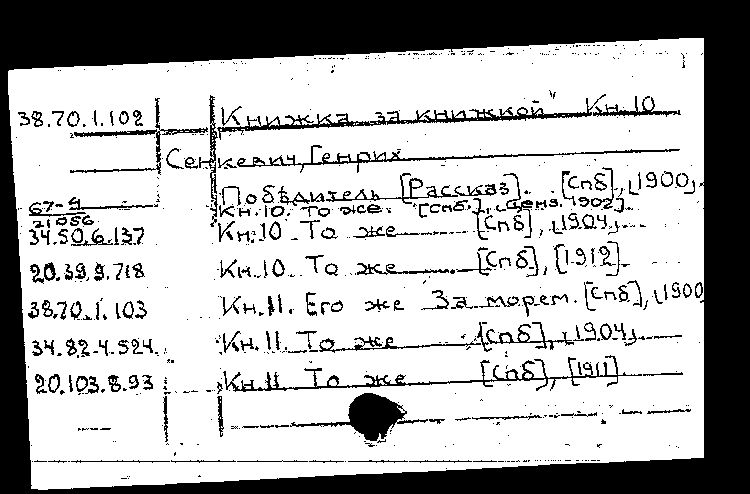 38.70.1.102 Книжка за книжкой" Кн.10
Сенкевич, Генрих
Побѣдитель [Рассказ]. [Спб], [1900].
67-9 Кн.10. То же. [Спб.], ценз. 1902].
21056
34.50.6.137 Кн.10 То же [Спб], [1904].
20.39.9.718 Кн.10. То же [Спб], [1912].
38.70.1.103 Кн.11. Его же За морем. [Спб], [1900
34.82.4.524. Кн.11. То же [Спб], [1904].
20.103.8.93 Кн.11 То же [Спб], [1911].